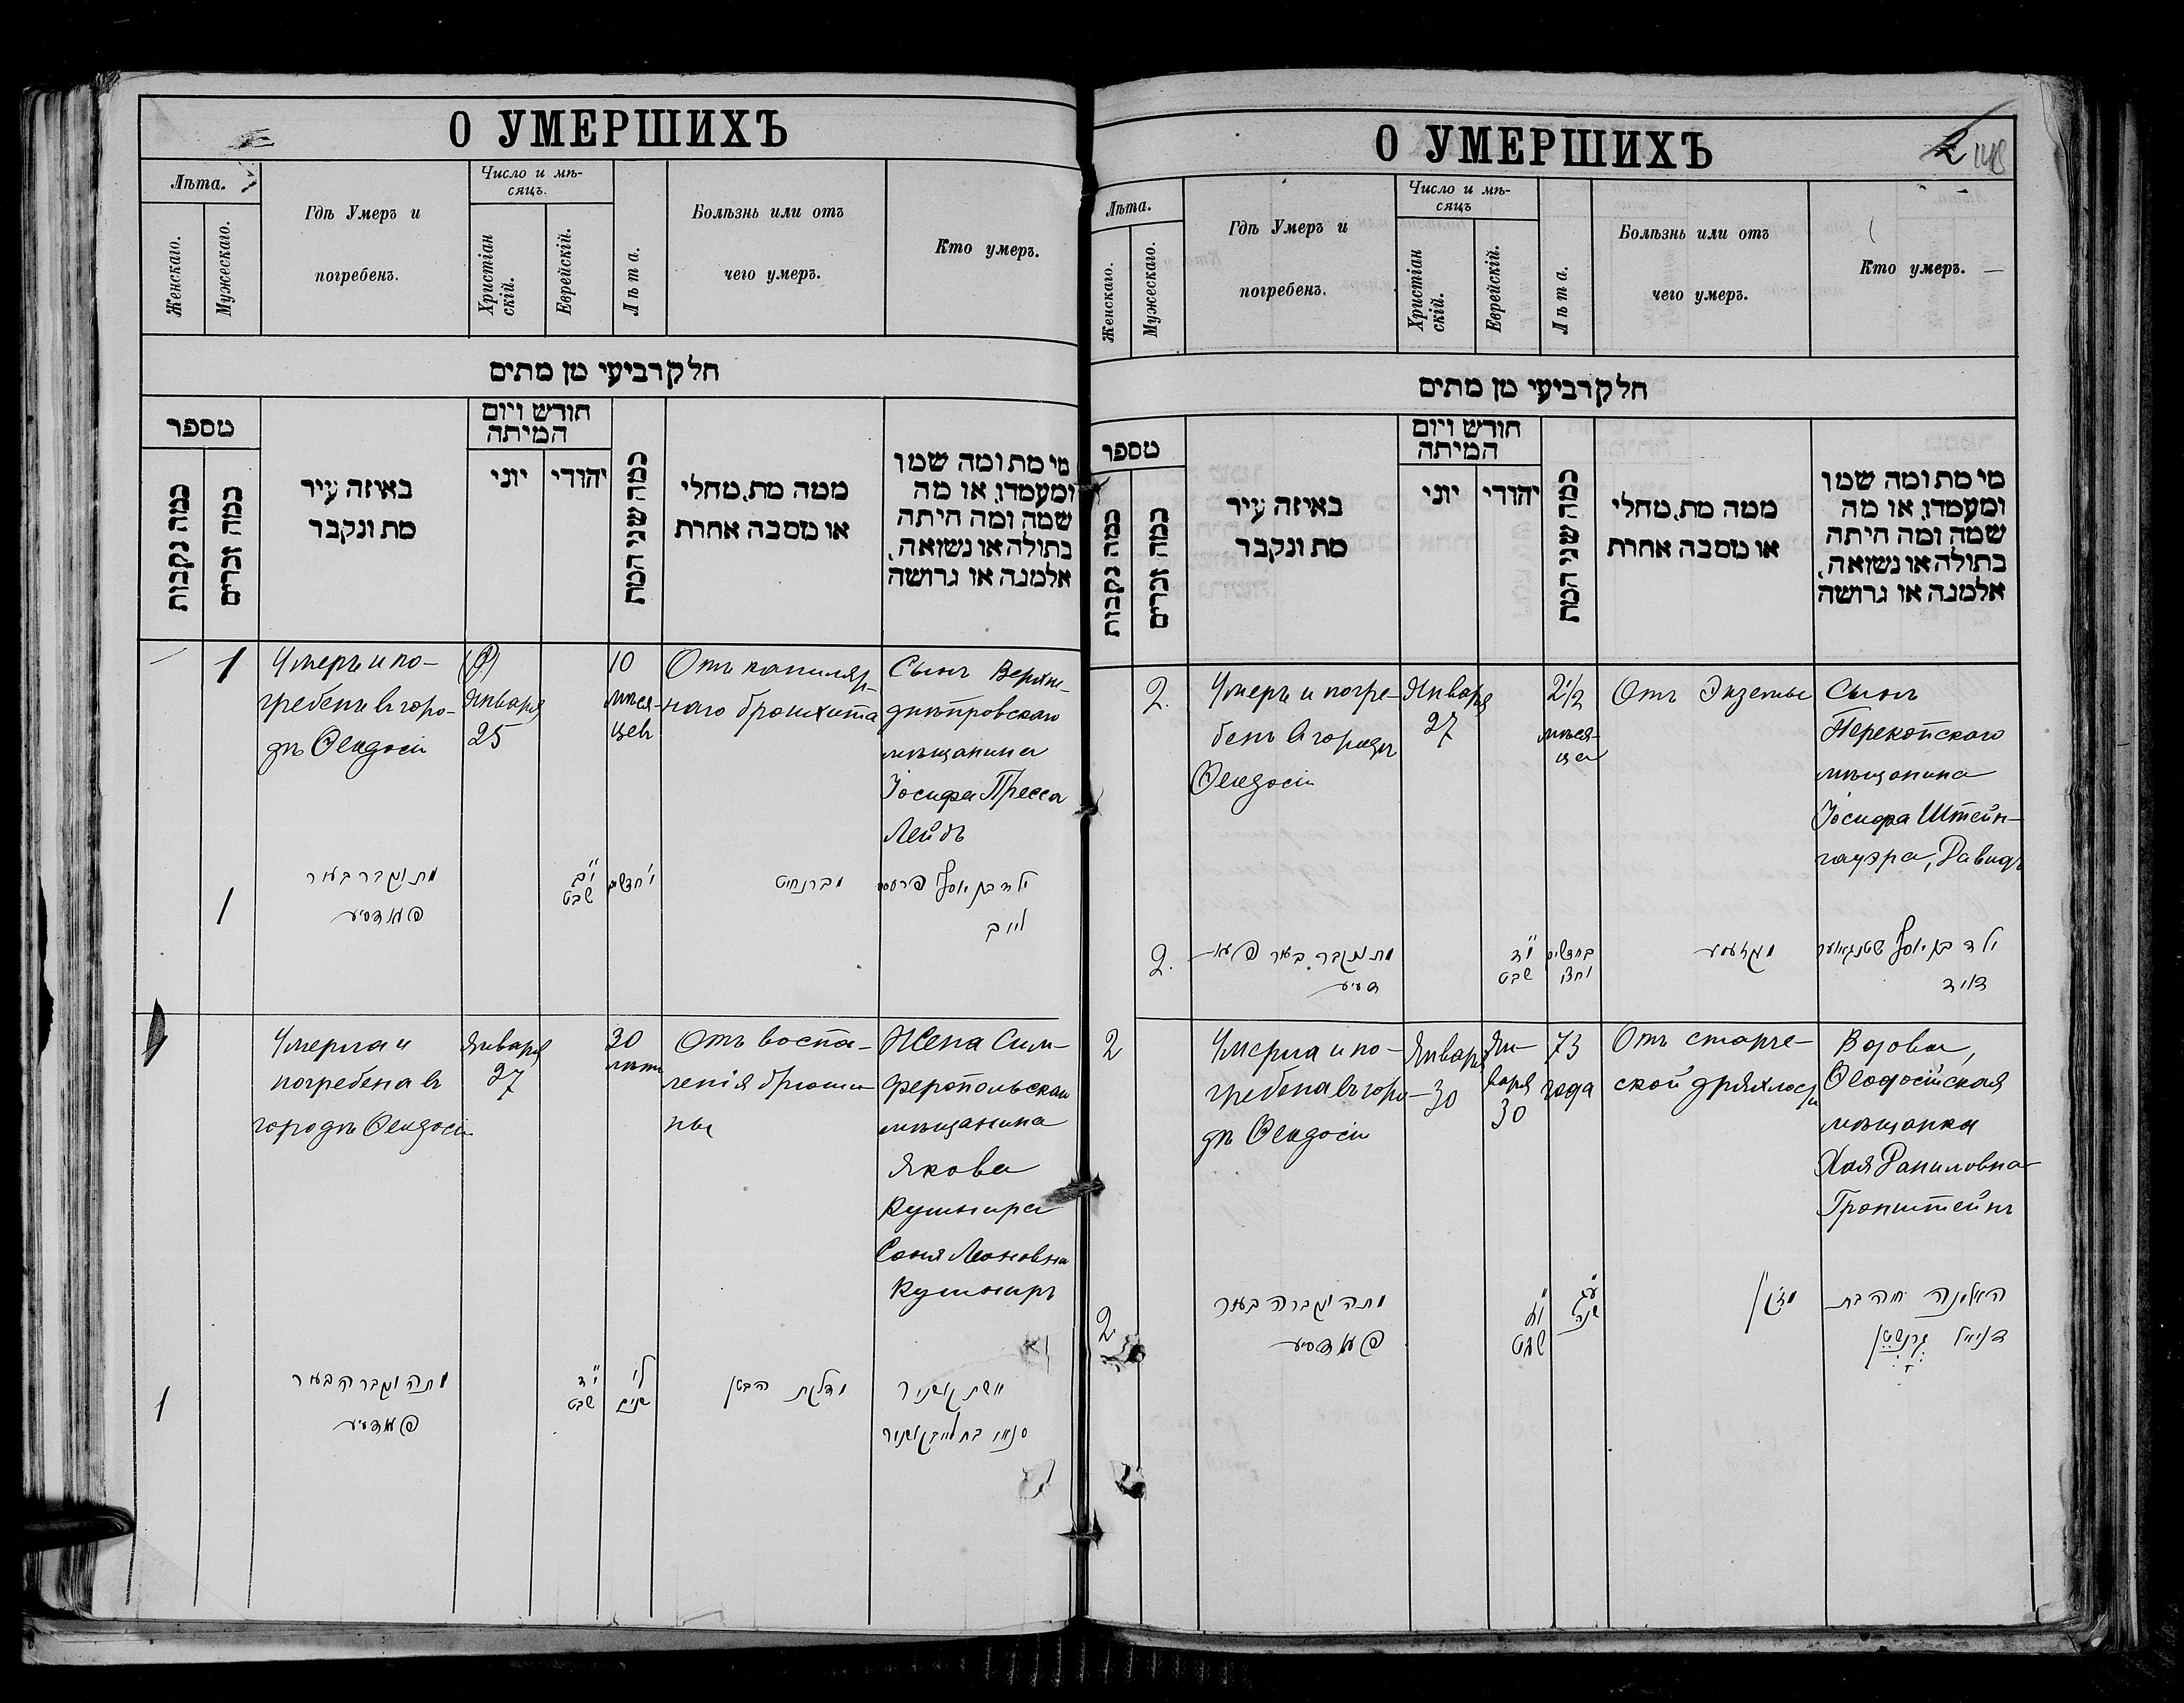 О УМЕРШИХЪ
Лѣта.
Женскаго.
Мужескаго.
Гдѣ Умеръ и
погребенъ.
Число и мѣ-
сяцъ.
Христіан
скій.
Еврейскій.
Лѣта.
Болѣзнь или отъ
чего умеръ.
Кто умеръ.
חלק רביעי מן מתים
מספר
כמה נקבות
כמה זכרים
באיזה עיר
מת ונקבר
חודש ויום
המיתה
יוני
יהודי
כמה שני המת
ממה מת, מחלי
או מסבה אחרת
מי מת ומה שמו
ומעמדו, או מה
שמה ומה היתה
בתולה או נשואה,
אלמנה או גרושה
1
Умеръ и по-
гребенъ въ горо-
дѣ Ѳеодосіи
Января
25
10
мѣся-
цев
Отъ капиляр-
наго бронхита
Сынъ Верхне-
днѣпровскаго
мѣщанина
Іосифа Пресса
Лейбъ
1
מת ונקבר בעיר
פעאדסיע
י"ב
שבט
י' חדשים
מברנחיט
ילד בן יוסף פרעסס
לייב
1
Умерла и
погребена въ
городѣ Ѳеодосіи
Января
27
30
лѣтъ
Отъ воспа-
ленія брюши-
ны
Жена Сим-
феропольскаго
мѣщанина
Якова
Кушнира
Соня Леоновна
Кушниръ
1
מתה ונקברה בעיר
פעאדסיע
י"ד
שבט
ל'
שנים
מדלקת הבטן
אשת קושניר
סאניא בת לייב קושניר
О УМЕРШИХЪ
2 148
Лѣта.
Женскаго.
Мужескаго.
Гдѣ Умеръ и
погребенъ.
Число и мѣ-
сяцъ
Христіан
скій.
Еврейскій.
Лѣта.
Болѣзнь или отъ
чего умеръ.
Кто умеръ.
חלק רביעי מן מתים
מספר
כמה נקבות
כמה זכרים
באיזה עיר
מת ונקבר
חודש ויום
המיתה
יוני
יהודי
כמה שני המת
ממה מת, מחלי
או מסבה אחרת
מי מת ומה שמו
ומעמדו, או מה
שמה ומה היתה
בתולה או נשואה,
אלמנה או גרושה
2.
Умеръ и погре-
бенъ въ городѣ
Ѳеодосіи
Января
27
2 1/2
мѣся-
ца
Отъ Экземы
Сынъ
Перекопскаго
мѣщанина
Іосифа Штейн-
гауэра, Давидъ
2.
מת ונקבר בעיר פעא-
דסיע
י"ד
שבט
ב חדשים
וחצי
ילד בן יוסף שטנגאוער
דוד
2
Умерла и по-
гребена въ горо-
дѣ Ѳеодосіи
Января
30
Ян-
варя
30
73
года
Отъ старче-
ской дряхлости
Вдова,
Ѳеодосійская
мѣщанка
Хая Даниловна
Гронштейнъ
2.
מתה ונקברה בעיר
פעאדסיע
שבט
ע"ג
שנה
מזקן
האלמנה חיה בת
דניאל גרנשטין